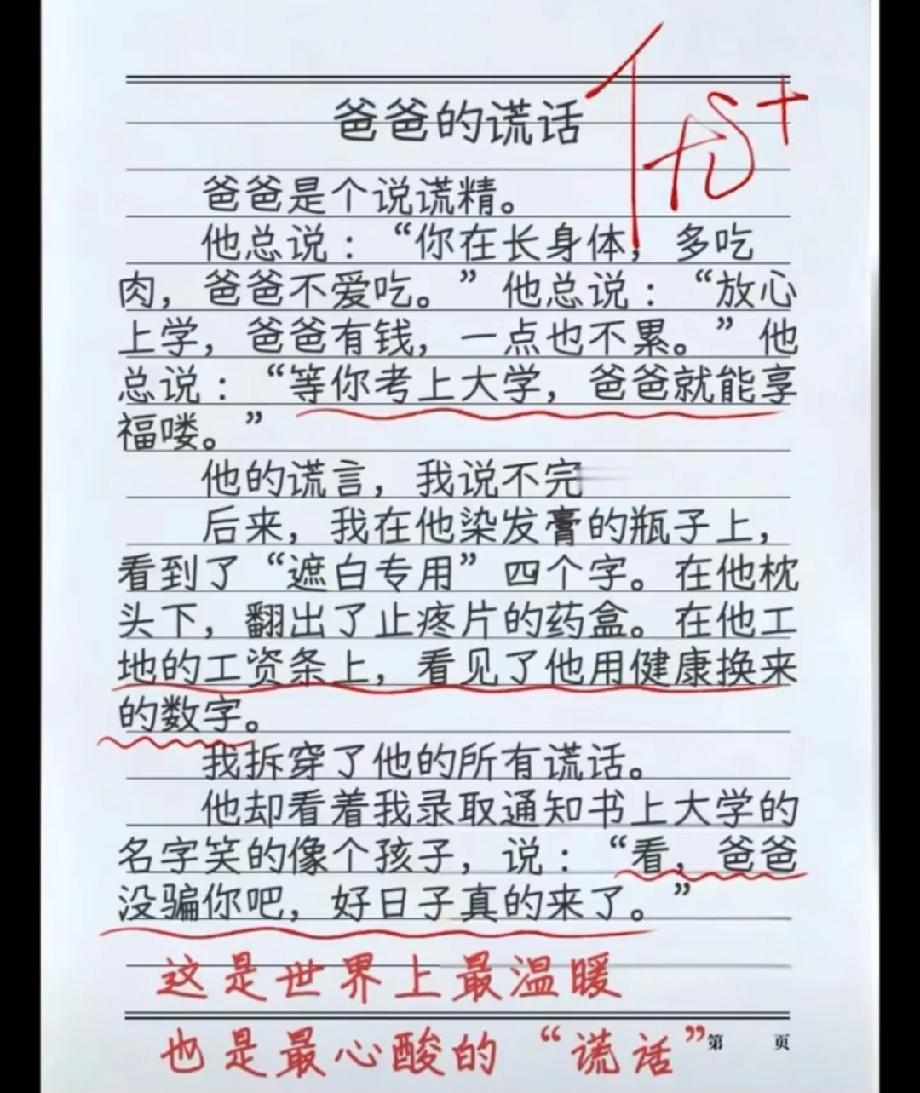 爸爸的谎话
优+
爸爸是个说谎精。
他总说：“你在长身体，多吃
肉，爸爸不爱吃。”他总说：“放心
上学，爸爸有钱，一点也不累。”他
总说：“等你考上大学，爸爸就能享
福喽。”
他的谎言，我说不完
后来，我在他染发膏的瓶子上，
看到了“遮白专用”四个字。在他枕
头下，翻出了止疼片的药盒。在他工
地的工资条上，看见了他用健康换来
的数字。
我拆穿了他的所有谎话。
他却看着我录取通知书上大学的
名字笑的像个孩子，说：“看，爸爸
没骗你吧，好日子真的来了。”
这是世界上最温暖
也是最心酸的“谎话”
第 页